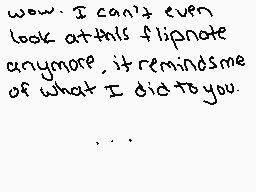 wow. I can't even
look at this flipnote
anymore, it reminds me
of what I did to you.
...